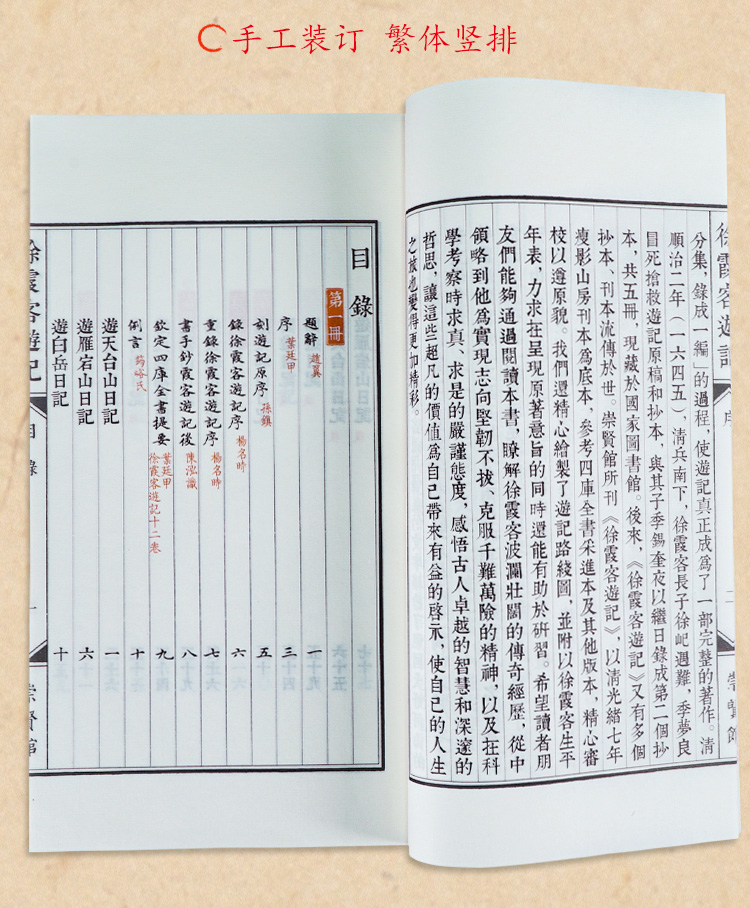 手工装订 繁体竖排
徐霞客遊記 序 二 崇賢館
分集，錄成一編」的過程，使遊記真正成爲了一部完整的著作。清
順治二年（一六四五），清兵南下，徐霞客長子徐屺遇難，季夢良
冒死搶救遊記原稿和抄本，與其子季錫奎夜以繼日錄成第二個抄
本，共五冊，現藏於國家圖書館。後來，《徐霞客遊記》又有多個
抄本、刊本流傳於世。崇賢館所刊《徐霞客遊記》，以清光緒七年
瘦影山房刊本爲底本，參考四庫全書采進本及其他版本，精心審
校以遵原貌。我們還精心繪製了遊記路綫圖，並附以徐霞客生平
年表，力求在呈現原著意旨的同時還能有助於研習。希望讀者朋
友們能夠通過閱讀本書，瞭解徐霞客波瀾壯闊的傳奇經歷，從中
領略到他爲實現志向堅韌不拔、克服千難萬險的精神，以及在科
學考察時求真、求是的嚴謹態度，感悟古人卓越的智慧和深邃的
哲思，讓這些超凡的價值爲自己帶來有益的啓示，使自己的人生
之旅也變得更加精彩。
目錄
第一冊
題辭 趙翼 一
序 葉廷甲 三
刻遊記原序 孫鎮 五
錄徐霞客遊記序 楊名時 六
重錄徐霞客遊記序 楊名時 七
書手鈔徐霞客遊記後 陳泓識 八
欽定四庫全書提要 葉廷甲 徐霞客遊記十二卷 九
例言 筠峪氏 十
遊天台山日記 一
遊雁宕山日記 六
遊白岳日記 十
徐霞客遊記 目錄 一 崇賢館